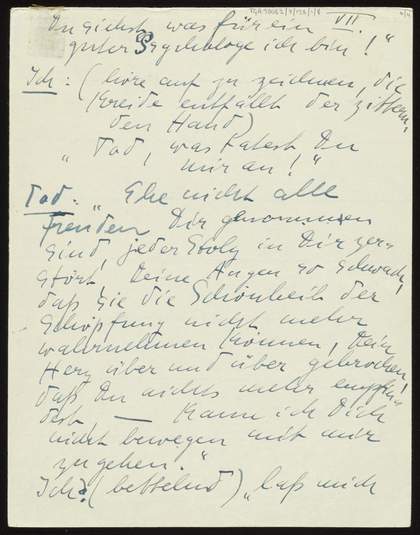 Du siehst was für ein VII.
guter Psychologe ich bin!"
Ich: (höre auf zu zeichnen, die
Kreide entfällt der zittern-
den Hand)
"Tod, was Ratest Du
mir an!"
Tod: "Ehe nicht alle
Freuden Dir genommen
sind, jeder Stolz in Dir zer-
stört, Deine Augen so schwach,
daß sie die Schönheit der
Schöpfung nicht mehr
wahrnehmen können, Dein
Herz über und über gebrochen,
daß Du nichts mehr empfin-
dest — kann ich Dich
nicht bewegen mit mir
zu gehen."
Ich: (bettelnd) "laß mich